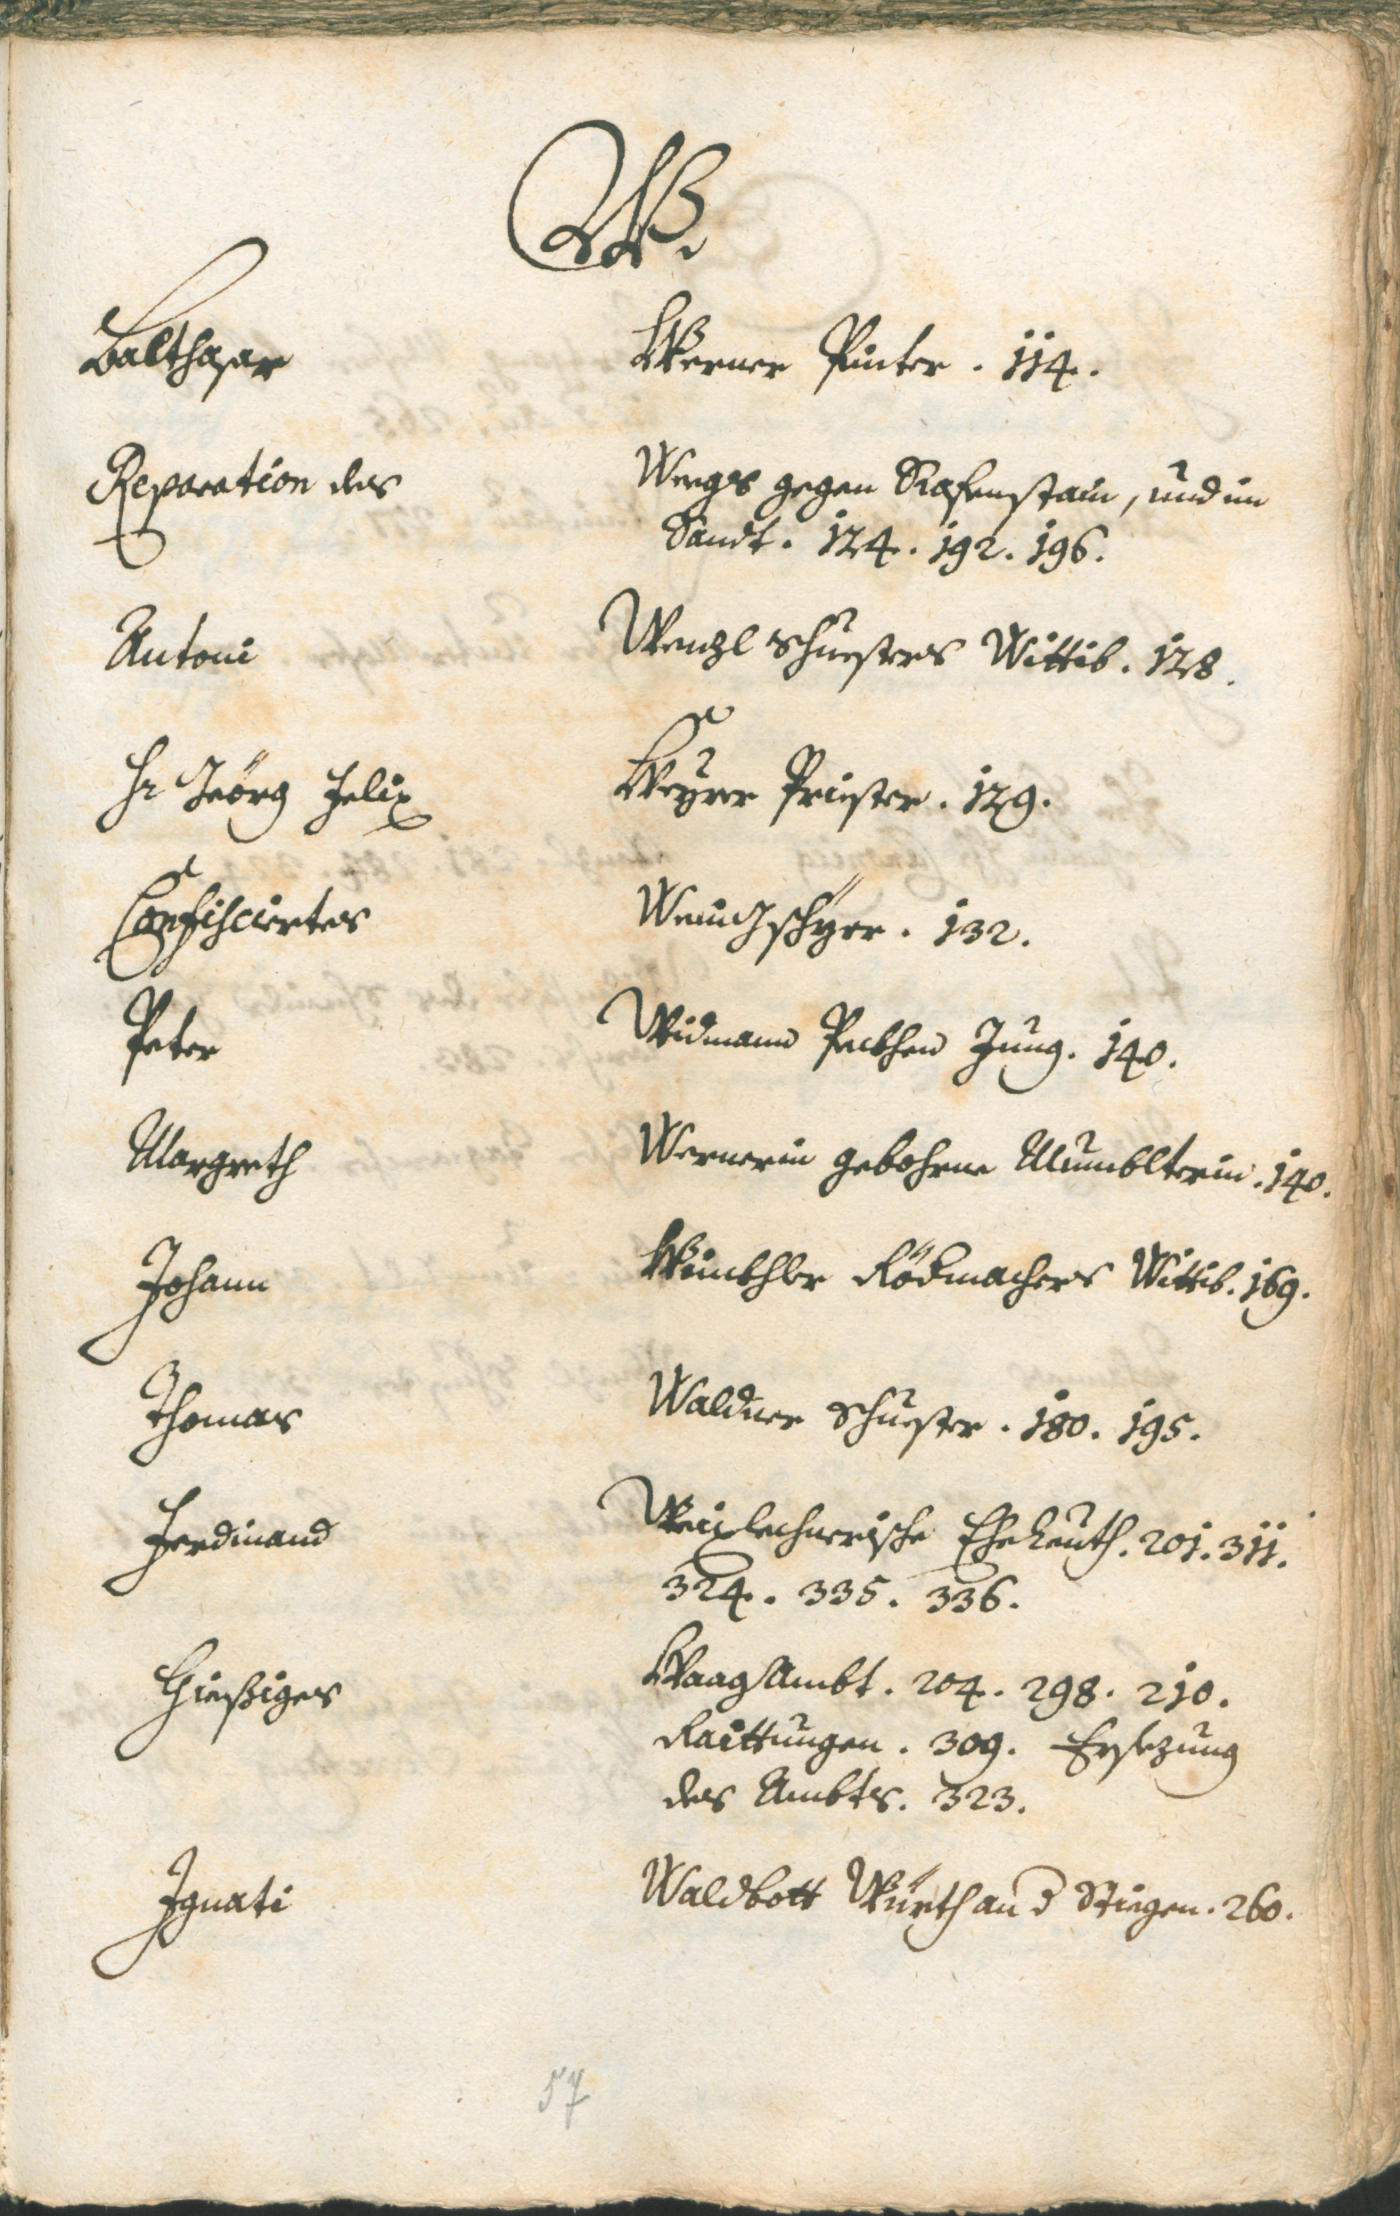 W.
Balthasar Werner Pinter . 114 .
Reparation des Weegs gegen Rafenstain , und im
Sandt . 124 . 192 . 196 .
Antoni Wenzl Schuesters Wittib . 128 .
Hr Geörg Felix Weyrer Priester . 129 .
Confiscirtes Weingschürr . 132 .
Peter Widmann Peckhen Jung . 140 .
Margreth Wernerin gebohrne Mumblterin . 140 .
Johann Winckhler Rödmachers Wittib . 169 .
Thomas Waldner Schuester . 180 . 195 .
Ferdinand Weixlechnerische Eheleuth . 201 . 311 .
324 . 335 . 336 .
Hießiges Waag Ambt . 204 . 298 . 210 .
Raittungen . 309 . Ersezung
des Ambts . 323 .
Ignati Waldbott Würth an d Stiegen . 260 .
57